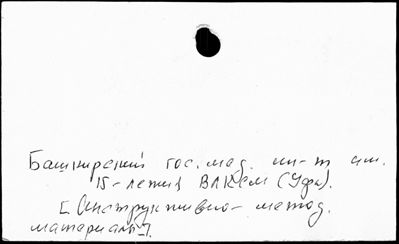 Башкирский гос. мед. ин-т им.
15-летия ВЛКСМ (Уфа).
[Инструктивно-метод.
материалы].